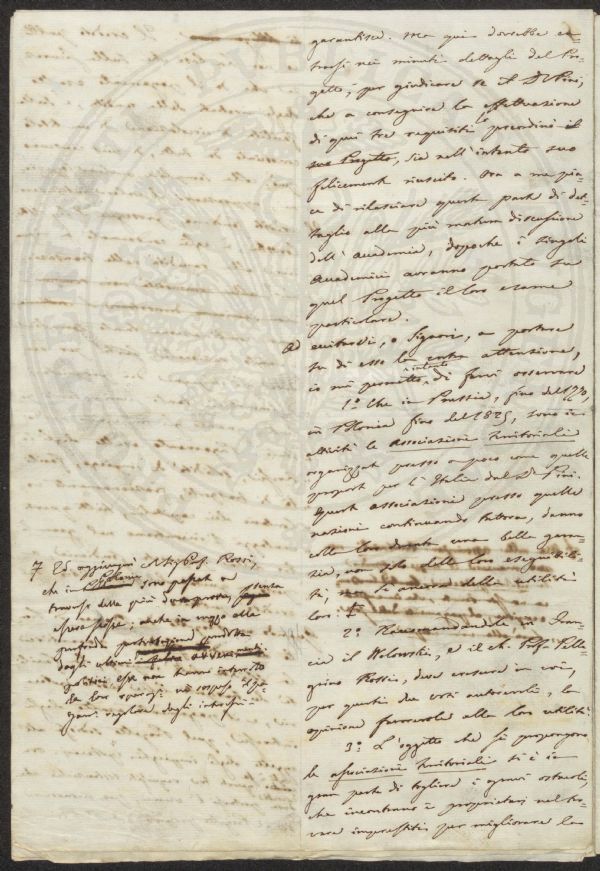 garantite. Ma qui dovrebbe en-
trarsi nei minuti dettagli del Pro-
getto, per giudicare se il Dr Pini,
che a conseguire la effettuazione
di quei tre requisiti
suo Progetto, sia nell'intento suo
felicemente riuscito. Ma a me pia-
ce di rilasciare questa parte di det-
taglio alla più matura discussione
dell'Accademia, doppoché i singoli
Accademici avranno portato su
quel Progetto il loro esame
particolare.
o Signori, a portare
su di esso la attenzione,
io mi permetto intanto di farvi osservare
1º Che in Prussia, fino del
in Polonia fino del 1825, sono in
attività le associazioni territoriali
organizzate presso a poco come quelle
proposte per l'Italia dal Dr Pini.
Queste associazioni presso quelle
nazioni continuando tuttora, danno
colla loro durata una bella garan-
zia, non solo della loro eseguibili-
tà, ma sì ancora della utilità
loro.
2º Raccomandate in Fran-
cia il Wolowski, e il ch. Prof. Pelle-
grino Rossi, deve crearsi in voi,
per questi due voti autorevoli, la
opinione favorevole alla loro utilità.
3º L'oggetto che si propongono
le associazioni territoriali si è in
gran parte di togliere i gravi ostacoli,
che incontrano i proprietari nel tro-
vare imprestiti per migliorare la
Ed aggiungeva Rossi,
che in Polonia sono passate a
traverso delle più dure prove,
anche in mezzo alle
dagli ultimi avvenimenti
politici esse non hanno interrotto
le loro operazioni, né sospeso il pa-
gamento regolare degli interessi